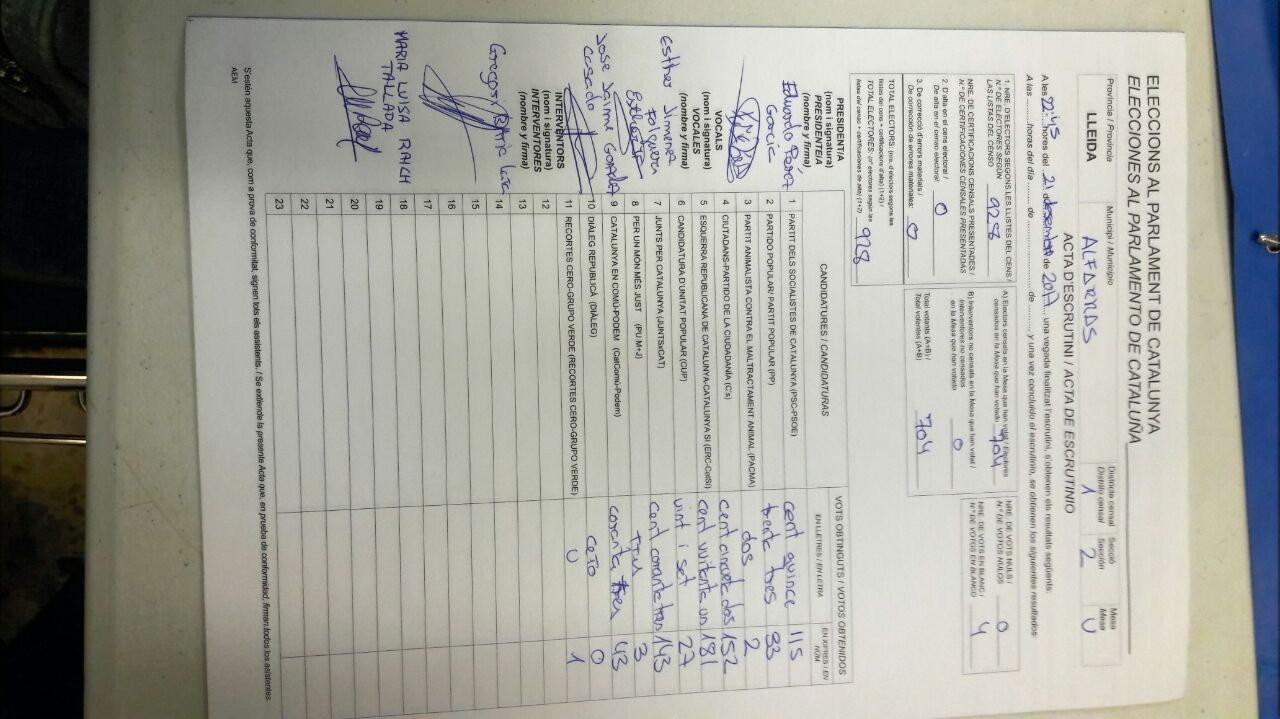 ELECCIONS AL PARLAMENT DE CATALUNYA
ELECCIONES AL PARLAMENTO DE CATALUÑA
Província / Provincia
LLEIDA
Municipi / Municipio
ALFARRÀS
Districte censal
Distrito censal
1
Secció
Sección
2
Mesa
Mesa
U
ACTA D'ESCRUTINI / ACTA DE ESCRUTINIO
A les 22:45 hores del 21 desembre de 2017, una vegada finalitzat l'escrutini, s'obtenen els resultats següents:
A las ........ horas del día ........ de ........ de ........ y una vez concluido el escrutinio, se obtienen los siguientes resultados:
1. NRE. D'ELECTORS SEGONS LES LLISTES DEL CENS /
N.º DE ELECTORES SEGÚN
LAS LISTAS DEL CENSO
928
NRE. DE CERTIFICACIONS CENSALS PRESENTADES /
N.º DE CERTIFICACIONES CENSALES PRESENTADAS
2. D'alta en el cens electoral /
De alta en el censo electoral:
0
3. De correcció d'errors materials /
De corrección de errores materiales:
0
TOTAL ELECTORS: (nre. d'electors segons les
llistes del cens + certificacions d'alta) (1+2) /
TOTAL ELECTORES: (n.º electores según las
listas del censo + certificaciones de alta) (1+2)
928
A) Electors censats en la Mesa que han votat / Electores
censados en la Mesa que han votado
704
B) Interventors no censats en la Mesa que han votat /
Interventores no censados
en la Mesa que han votado
0
Total votants (A+B) /
Total votantes (A+B)
704
NRE. DE VOTS NULS /
N.º DE VOTOS NULOS
0
NRE. DE VOTS EN BLANC /
N.º DE VOTOS EN BLANCO
4
CANDIDATURES / CANDIDATURAS
VOTS OBTINGUTS / VOTOS OBTENIDOS
EN LLETRES / EN LETRA
EN XIFRES / EN NÚM.
1 PARTIT DELS SOCIALISTES DE CATALUNYA (PSC-PSOE) cent quince 115
2 PARTIDO POPULAR/ PARTIT POPULAR (PP) trenta tres 33
3 PARTIT ANIMALISTA CONTRA EL MALTRACTAMENT ANIMAL (PACMA) dos 2
4 CIUTADANS-PARTIDO DE LA CIUDADANÍA (Cs) cent cinquanta dos 152
5 ESQUERRA REPUBLICANA DE CATALUNYA-CATALUNYA SÍ (ERC-CatSí) cent vuitanta un 181
6 CANDIDATURA D'UNITAT POPULAR (CUP) vint i set 27
7 JUNTS PER CATALUNYA (JUNTSxCAT) cent coranta tres 143
8 PER UN MÓN MÉS JUST (PUM+J) tres 3
9 CATALUNYA EN COMÚ-PODEM (CatComú-Podem) coranta tres 43
10 DIÀLEG REPUBLICÀ (DIÀLEG) cero 0
11 RECORTES CERO-GRUPO VERDE (RECORTES CERO-GRUPO VERDE) U 1
12
13
14
15
16
17
18
19
20
21
22
23
PRESIDENT/A
(nom i signatura)
PRESIDENTE/A
(nombre y firma)
Eduardo Perez
Garcia
VOCALS
(nom i signatura)
VOCALES
(nombre y firma)
Esther Jimenez
Folguera
Jose Jaime Gonzalez
Casado
INTERVENTORS
(nom i signatura)
INTERVENTORES
(nombre y firma)
MARIA LUISA RAICH
TALLADA
S'estén aquesta Acta que, com a prova de conformitat, signen tots els assistents. / Se extiende la presente Acta que, en prueba de conformidad, firman todos los asistentes.
AEM